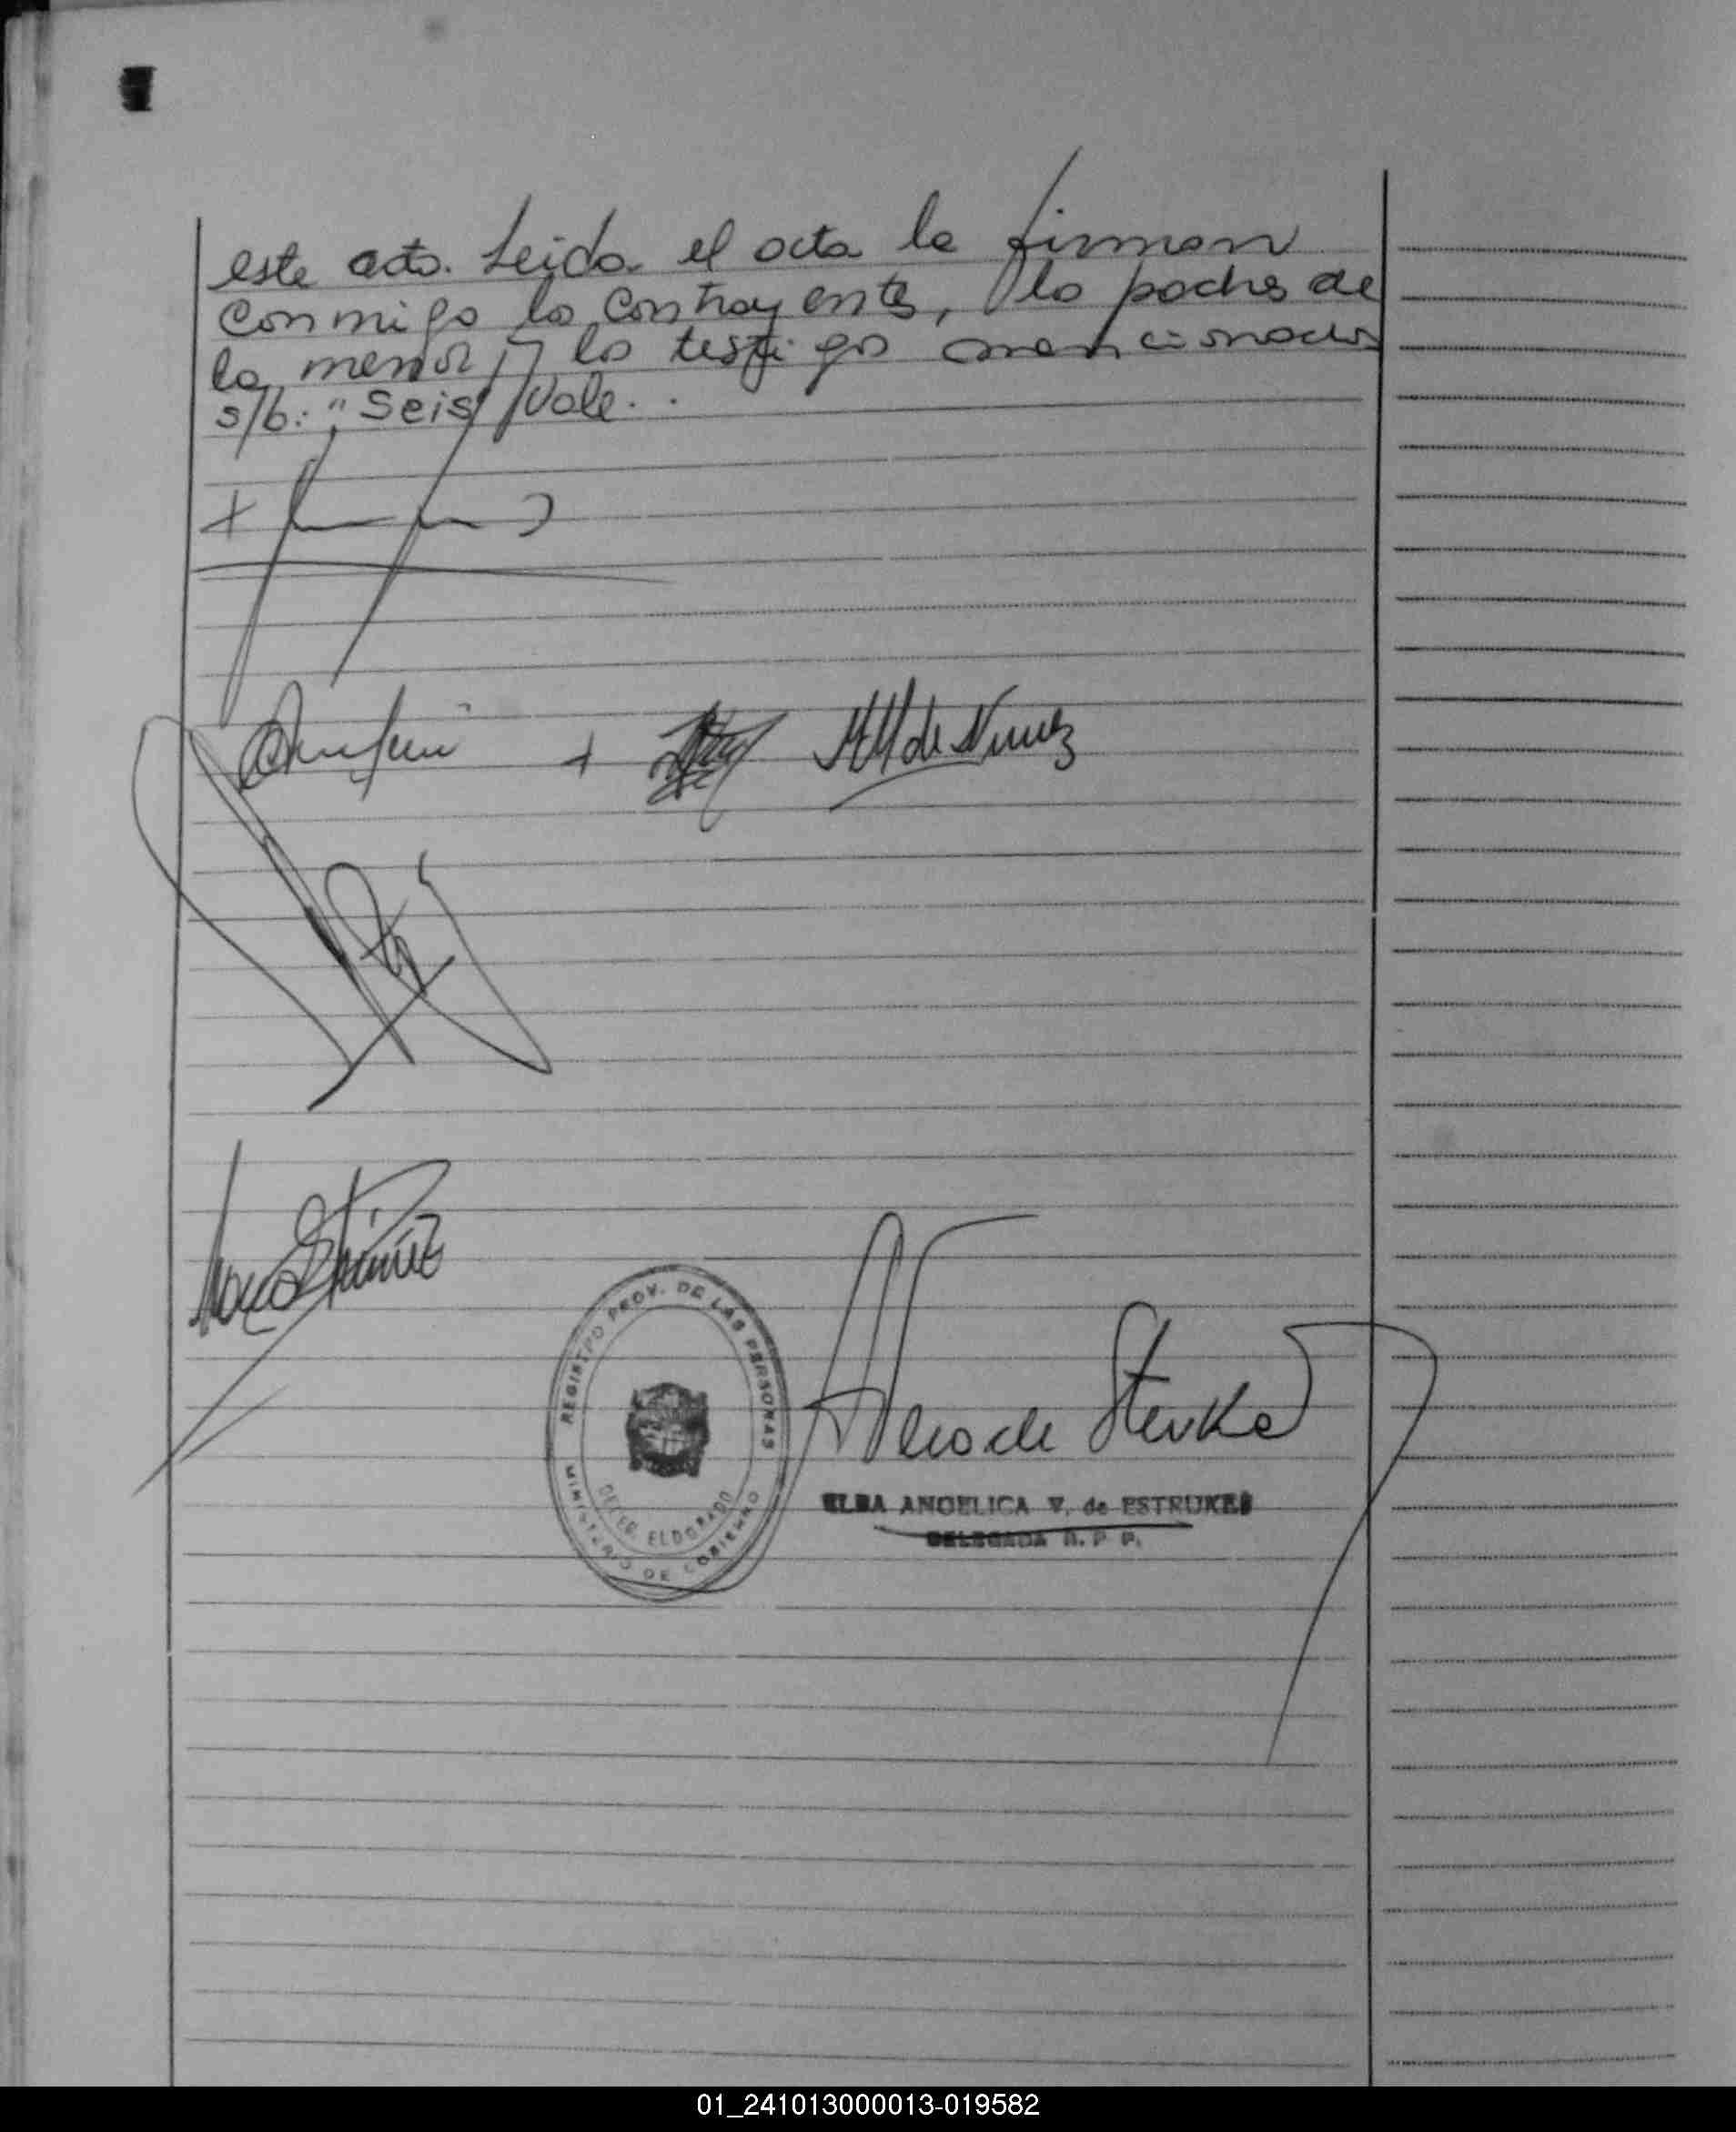 este acto. Leida el acta la firman
conmigo los contrayentes, los padres de
la menor y los testigos mencionados
s/b: "Seis" Vale. .
+
+ M M de Nunez
Nuñez
REGISTRO PROV. DE LAS PERSONAS
MINISTERIO DE GOBIERNO
DELEG. ELDORADO
ELBA ANGELICA V. de ESTRUKES
DELEGADA R. P P.
01_241013000013-019582